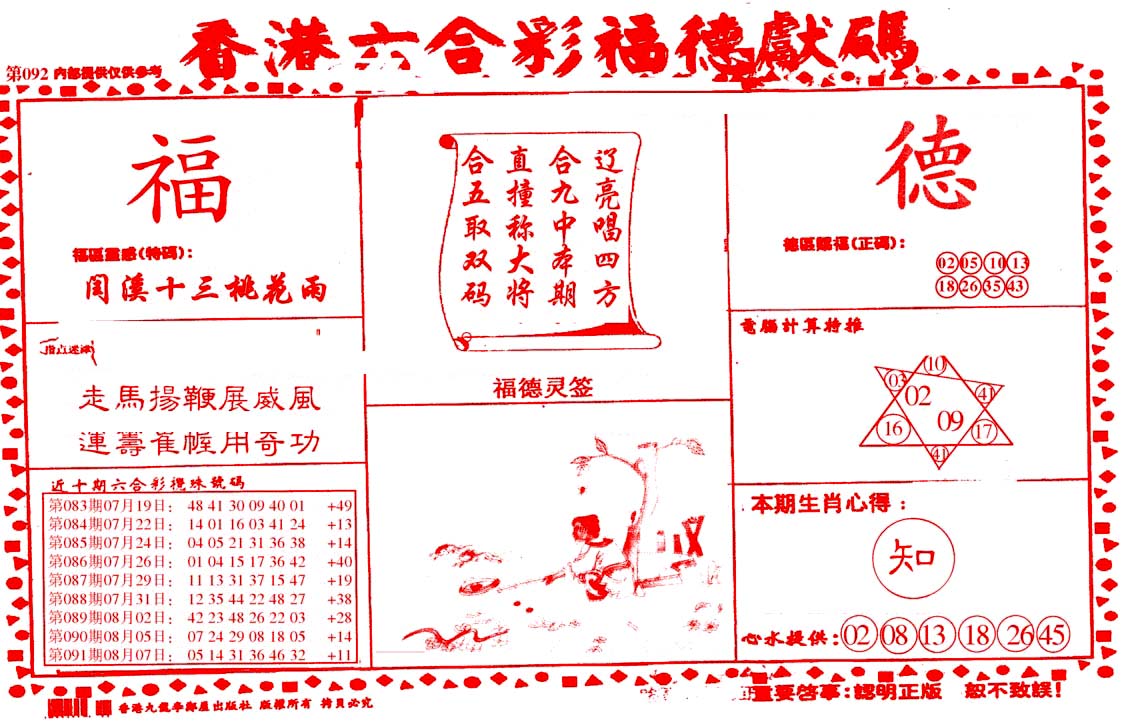 香港六合彩福德獻碼
第092 內部提供仅供参考
福
福區靈感(特碼):
閏溪十三桃花雨
走馬揚鞭展威風
運籌崔幄用奇功
近十期六合彩攪珠號碼
第083期07月19日: 48 41 30 09 40 01 +49
第084期07月22日: 14 01 16 03 41 24 +13
第085期07月24日: 04 05 21 31 36 38 +14
第086期07月26日: 01 04 15 17 36 42 +40
第087期07月29日: 11 13 31 37 15 47 +19
第088期07月31日: 12 35 44 22 48 27 +38
第089期08月02日: 42 23 48 26 22 03 +28
第090期08月05日: 07 24 29 08 18 05 +14
第091期08月07日: 05 14 31 36 46 32 +11
辽亮唱四方
合九中本期
直撞称大将
合五取双码
福德灵签
德
德區賜福(正碼):
02 05 10 13
18 26 35 43
電腦計算特推
10
03 02 41
16 09 17
41
本期生肖心得:
知
心水提供: 02 08 13 18 26 45
重要啓事:認明正版 恕不致誤!
版權所有 拷貝必究